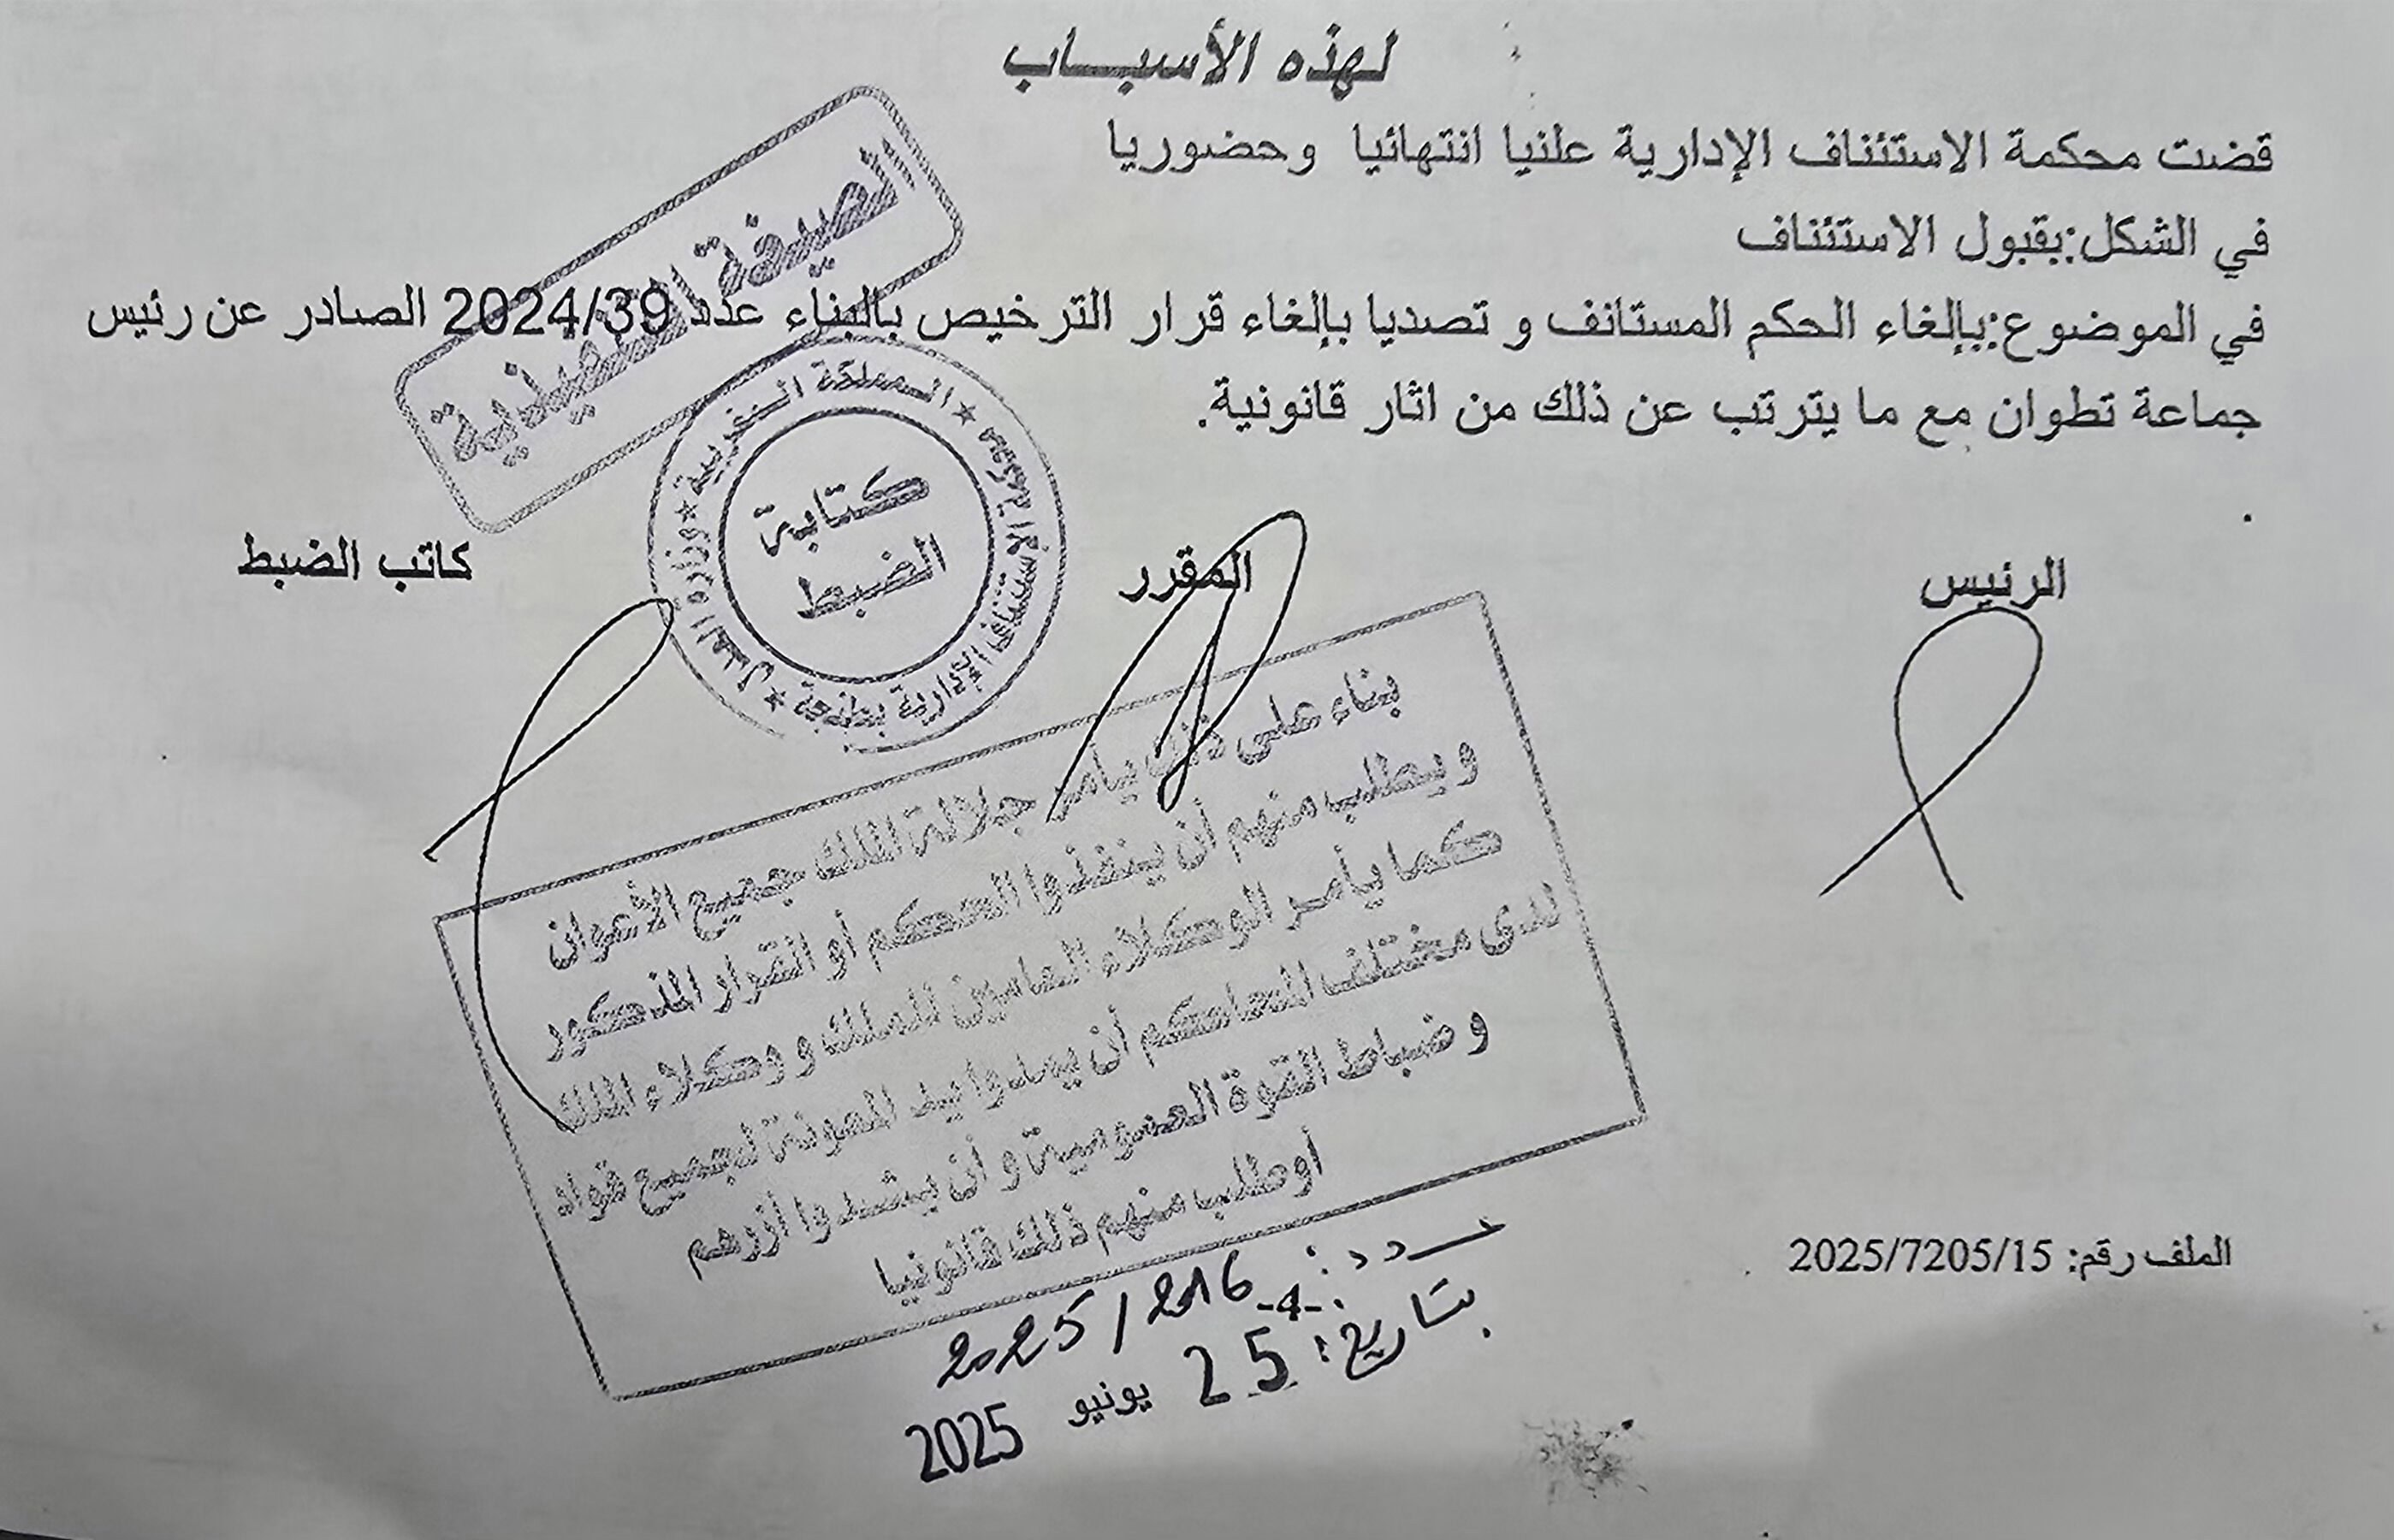 لهذه الأسبـــاب
قضت محكمة الاستئناف الإدارية علنيا انتهائيا وحضوريا
في الشكل:بقبول الاستئناف
في الموضوع:بإلغاء الحكم المستانف و تصديا بإلغاء قرار الترخيص بالبناء عدد 2024/39 الصادر عن رئيس
جماعة تطوان مع ما يترتب عن ذلك من اثار قانونية.
الصيغة التنفيذية
الرئيس
المقرر
كاتب الضبط
المملكة المغربية ★ وزارة العدل ★ محكمة الاستئناف الإدارية بطنجة ★
كتابة
الضبط
بناء على ذلك يأمر جلالة الملك جميع الأعوان
و يطلب منهم أن ينفذوا الحكم أو القرار المذكور
كما يأمر الوكلاء العامين للملك و وكلاء الملك
لدى مختلف المحاكم أن يمدوا يد المعونة لجميع قواد
و ضباط القوة العمومية و أن يشدوا أزرهم
أوطلب منهم ذلك قانونيا
الملف رقم: 2025/7205/15
عـــدد: 2025/2016
-4-
بتاريخ: 25 يونيو 2025